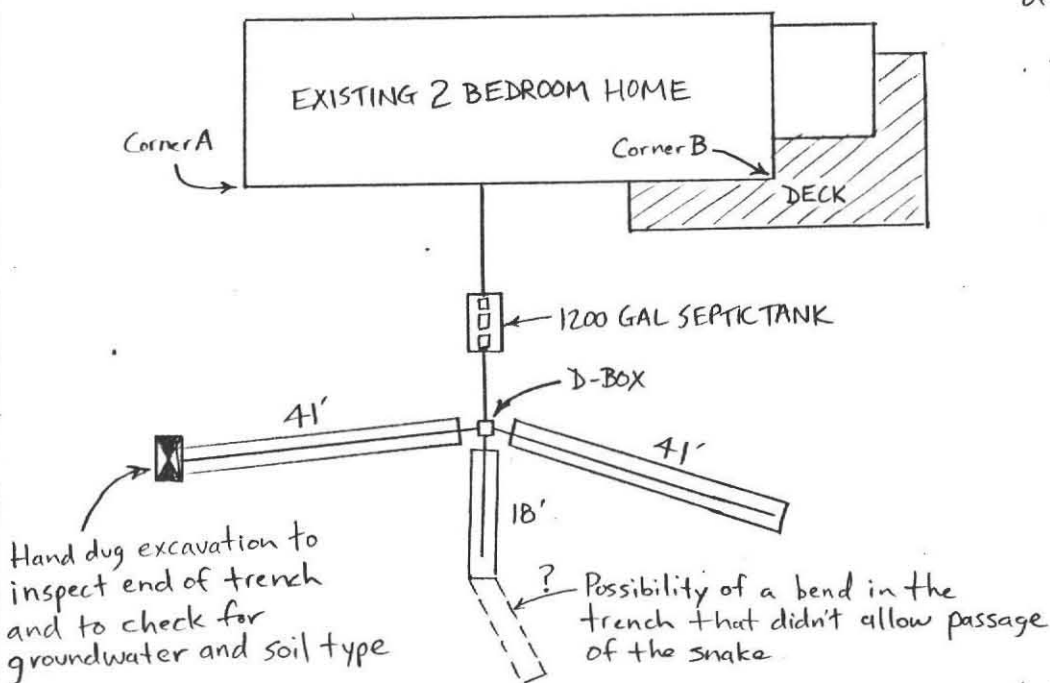 EXISTING 2 BEDROOM HOME
Corner A
Corner B
DECK
1200 GAL SEPTIC TANK
D-BOX
41'
41'
18'
Hand dug excavation to
inspect end of trench
and to check for
groundwater and soil type
?
Possibility of a bend in the
trench that didn't allow passage
of the snake